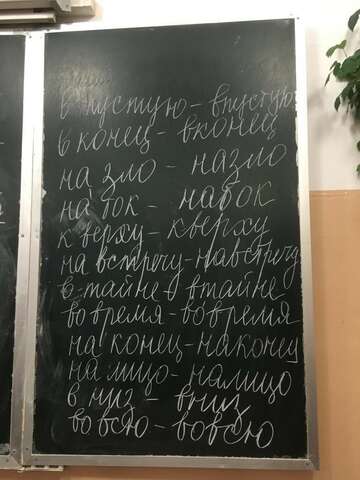 в пустую - впустую
в конец - вконец
на зло - назло
на бок - набок
к верху - кверху
на встречу - навстречу
в тайне - втайне
во время - вовремя
на конец - наконец
на лицо - налицо
в низ - вниз
во всю - вовсю